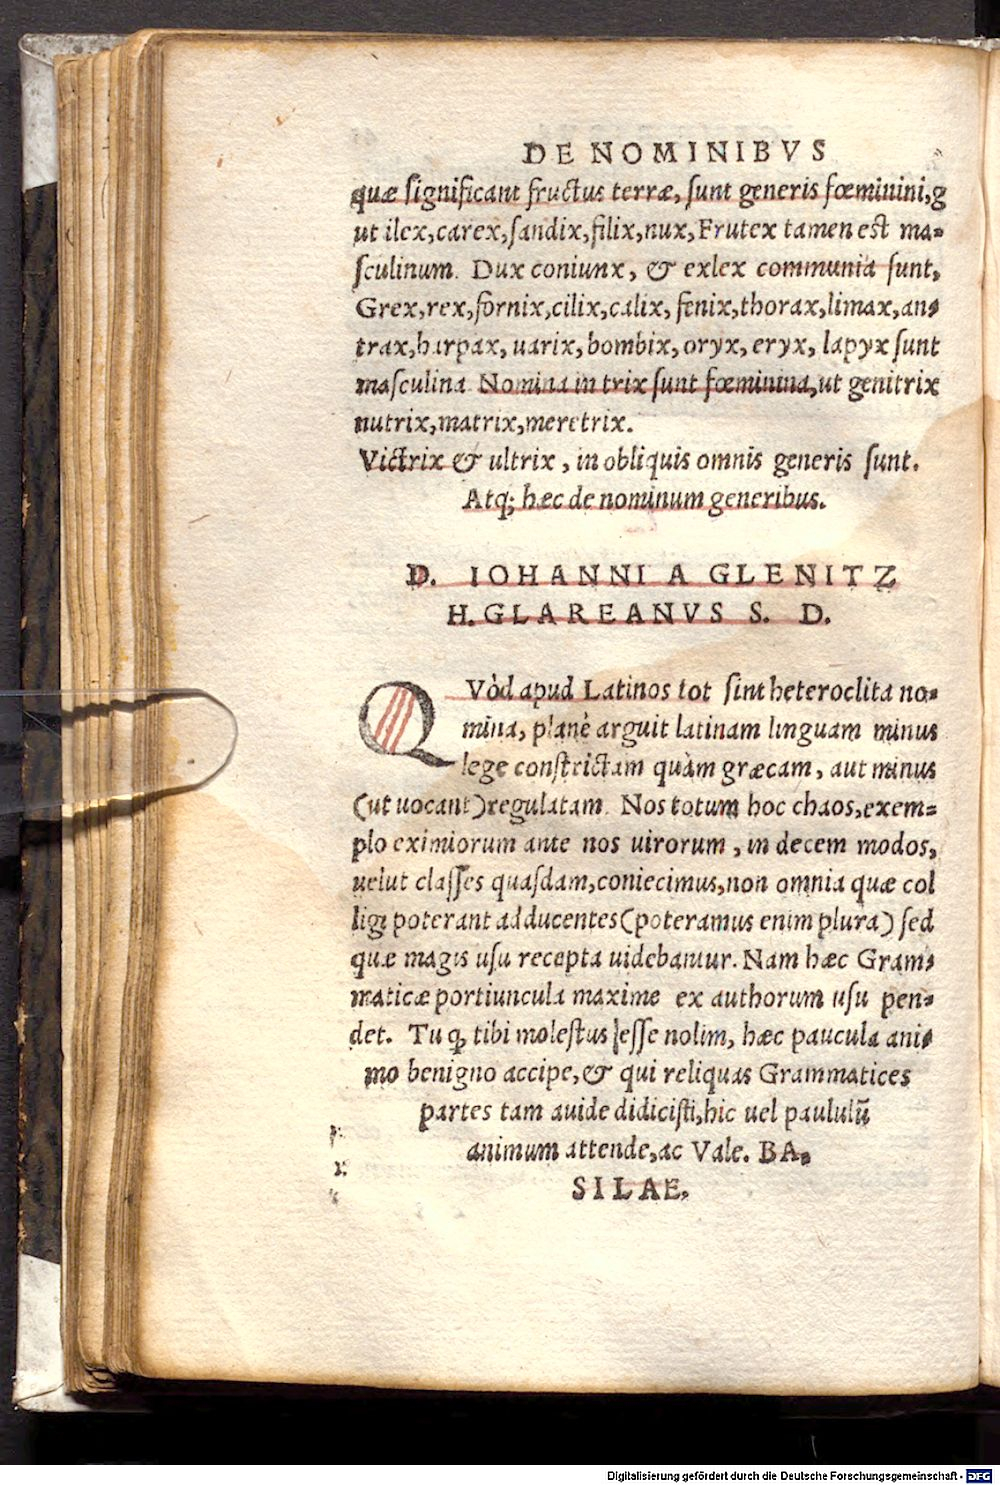 DE NOMINIBVS
quæ significant fructus terræ, sunt generis fœminini, g
ut ilex, carex, sandix, filix, nux, Frutex tamen est ma-
sculinum. Dux coniunx, & exlex communia sunt,
Grex, rex, fornix, cilix, calix, fenix, thorax, limax, an-
trax, harpax, uarix, bombix, oryx, eryx, lapyx sunt
masculina. Nomina in trix sunt fœminina, ut genitrix
nutrix, matrix, meretrix.
Victrix & ultrix, in obliquis omnis generis sunt.
Atq; hæc de nominum generibus.
D. IOHANNI A GLENITZ
H. GLAREANVS S. D.
QVòd apud Latinos tot sint heteroclita no-
mina, planè arguit latinam linguam minus
lege constrictam quàm græcam, aut minus
(ut uocant) regulatam. Nos totum hoc chaos, exem-
plo eximiorum ante nos uirorum, in decem modos,
uelut classes quasdam, coniecimus, non omnia quæ col
ligi poterant adducentes (poteramus enim plura) sed
quæ magis usu recepta uidebantur. Nam hæc Gram-
maticæ portiuncula maxime ex authorum usu pen-
det. Tu q, tibi molestus esse nolim, hæc paucula ani-
mo benigno accipe, & qui reliquas Grammatices
partes tam auide didicisti, hic uel paululũ
animum attende, ac Vale. BA-
SILAE.
Digitalisierung gefördert durch die Deutsche Forschungsgemeinschaft - DFG